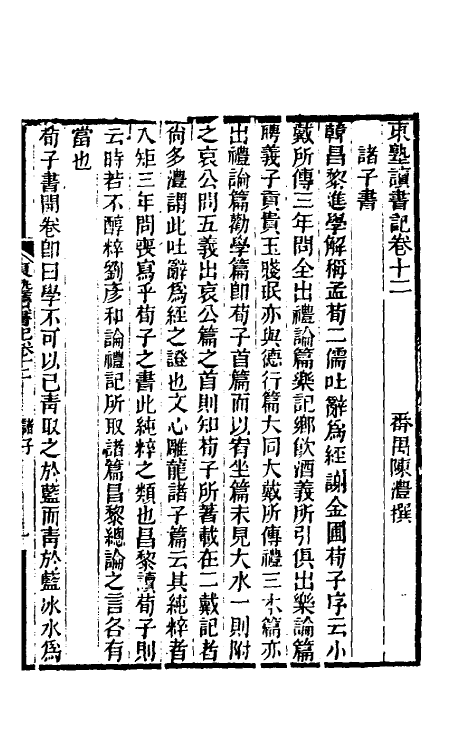 東塾讀書記卷十二
番禺陳澧撰
諸子書
韓昌黎進學解稱孟荀二儒吐辭為經謝金圃荀子序云小
戴所傳三年問全出禮論篇樂記鄉飲酒義所引俱出樂論篇
聘義子貢貴玉賤珉亦與德行篇大同大戴所傳禮三本篇亦
出禮論篇勸學篇即荀子首篇而以宥坐篇末見大水一則附
之哀公問五義出哀公篇之首則知荀子所著載在二戴記者
尚多澧謂此吐辭為經之證也文心雕龍諸子篇云其純粹者
入矩三年問喪寫乎荀子之書此純粹之類也昌黎讀荀子則
云時若不醇粹劉彥和論禮記所取諸篇昌黎總論之言各有
當也
荀子書開卷即曰學不可以已青取之於藍而青於藍冰水為
東塾讀書記卷十二
諸子
一